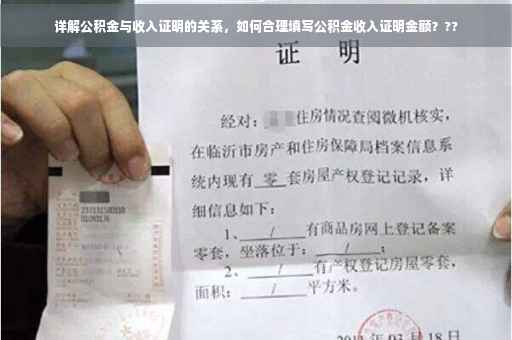 详解公积金与收入证明的关系，如何合理填写公积金收入证明金额？??
证 明
经对：住房情况查阅微机核实，
在临沂市房产和住房保障局档案信息系
统内现有 零 套房屋产权登记记录，详
细信息如下：
1、 / 有商品房网上登记备案
零套，坐落位于： / ；
2、 / 有产权登记房屋零套，
面积： / 平方米。
月 18 日